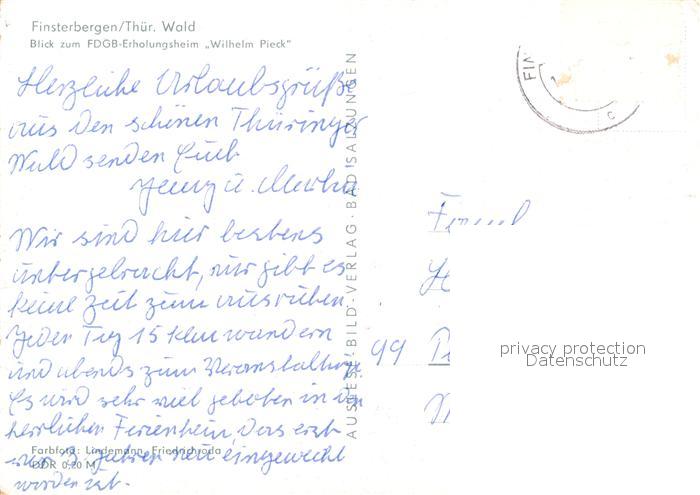 Finsterbergen/Thür. Wald
Blick zum FDGB-Erholungsheim „Wilhelm Pieck"
Herzliche Urlaubsgrüße
aus den schönen Thüringer
Wald senden Euch
u. Martha
Wir sind hier bestens
untergebracht, nur gibt es
keine Zeit zum ausruhen.
Jeden Tag 15 klm wandern
und abends zum Veranstaltung
Es wird sehr viel geboten in den
herrlichen Ferienheim, das erst
vor 3 Jahren neu eingeweiht
worden ist.
Farbfoto: Lindemann, Friedrichroda
DDR 0,20 M
AUSLESE-BILD-VERLAG · BAD SALZUNGEN
FIN
C
99
privacy protection
Datenschutz